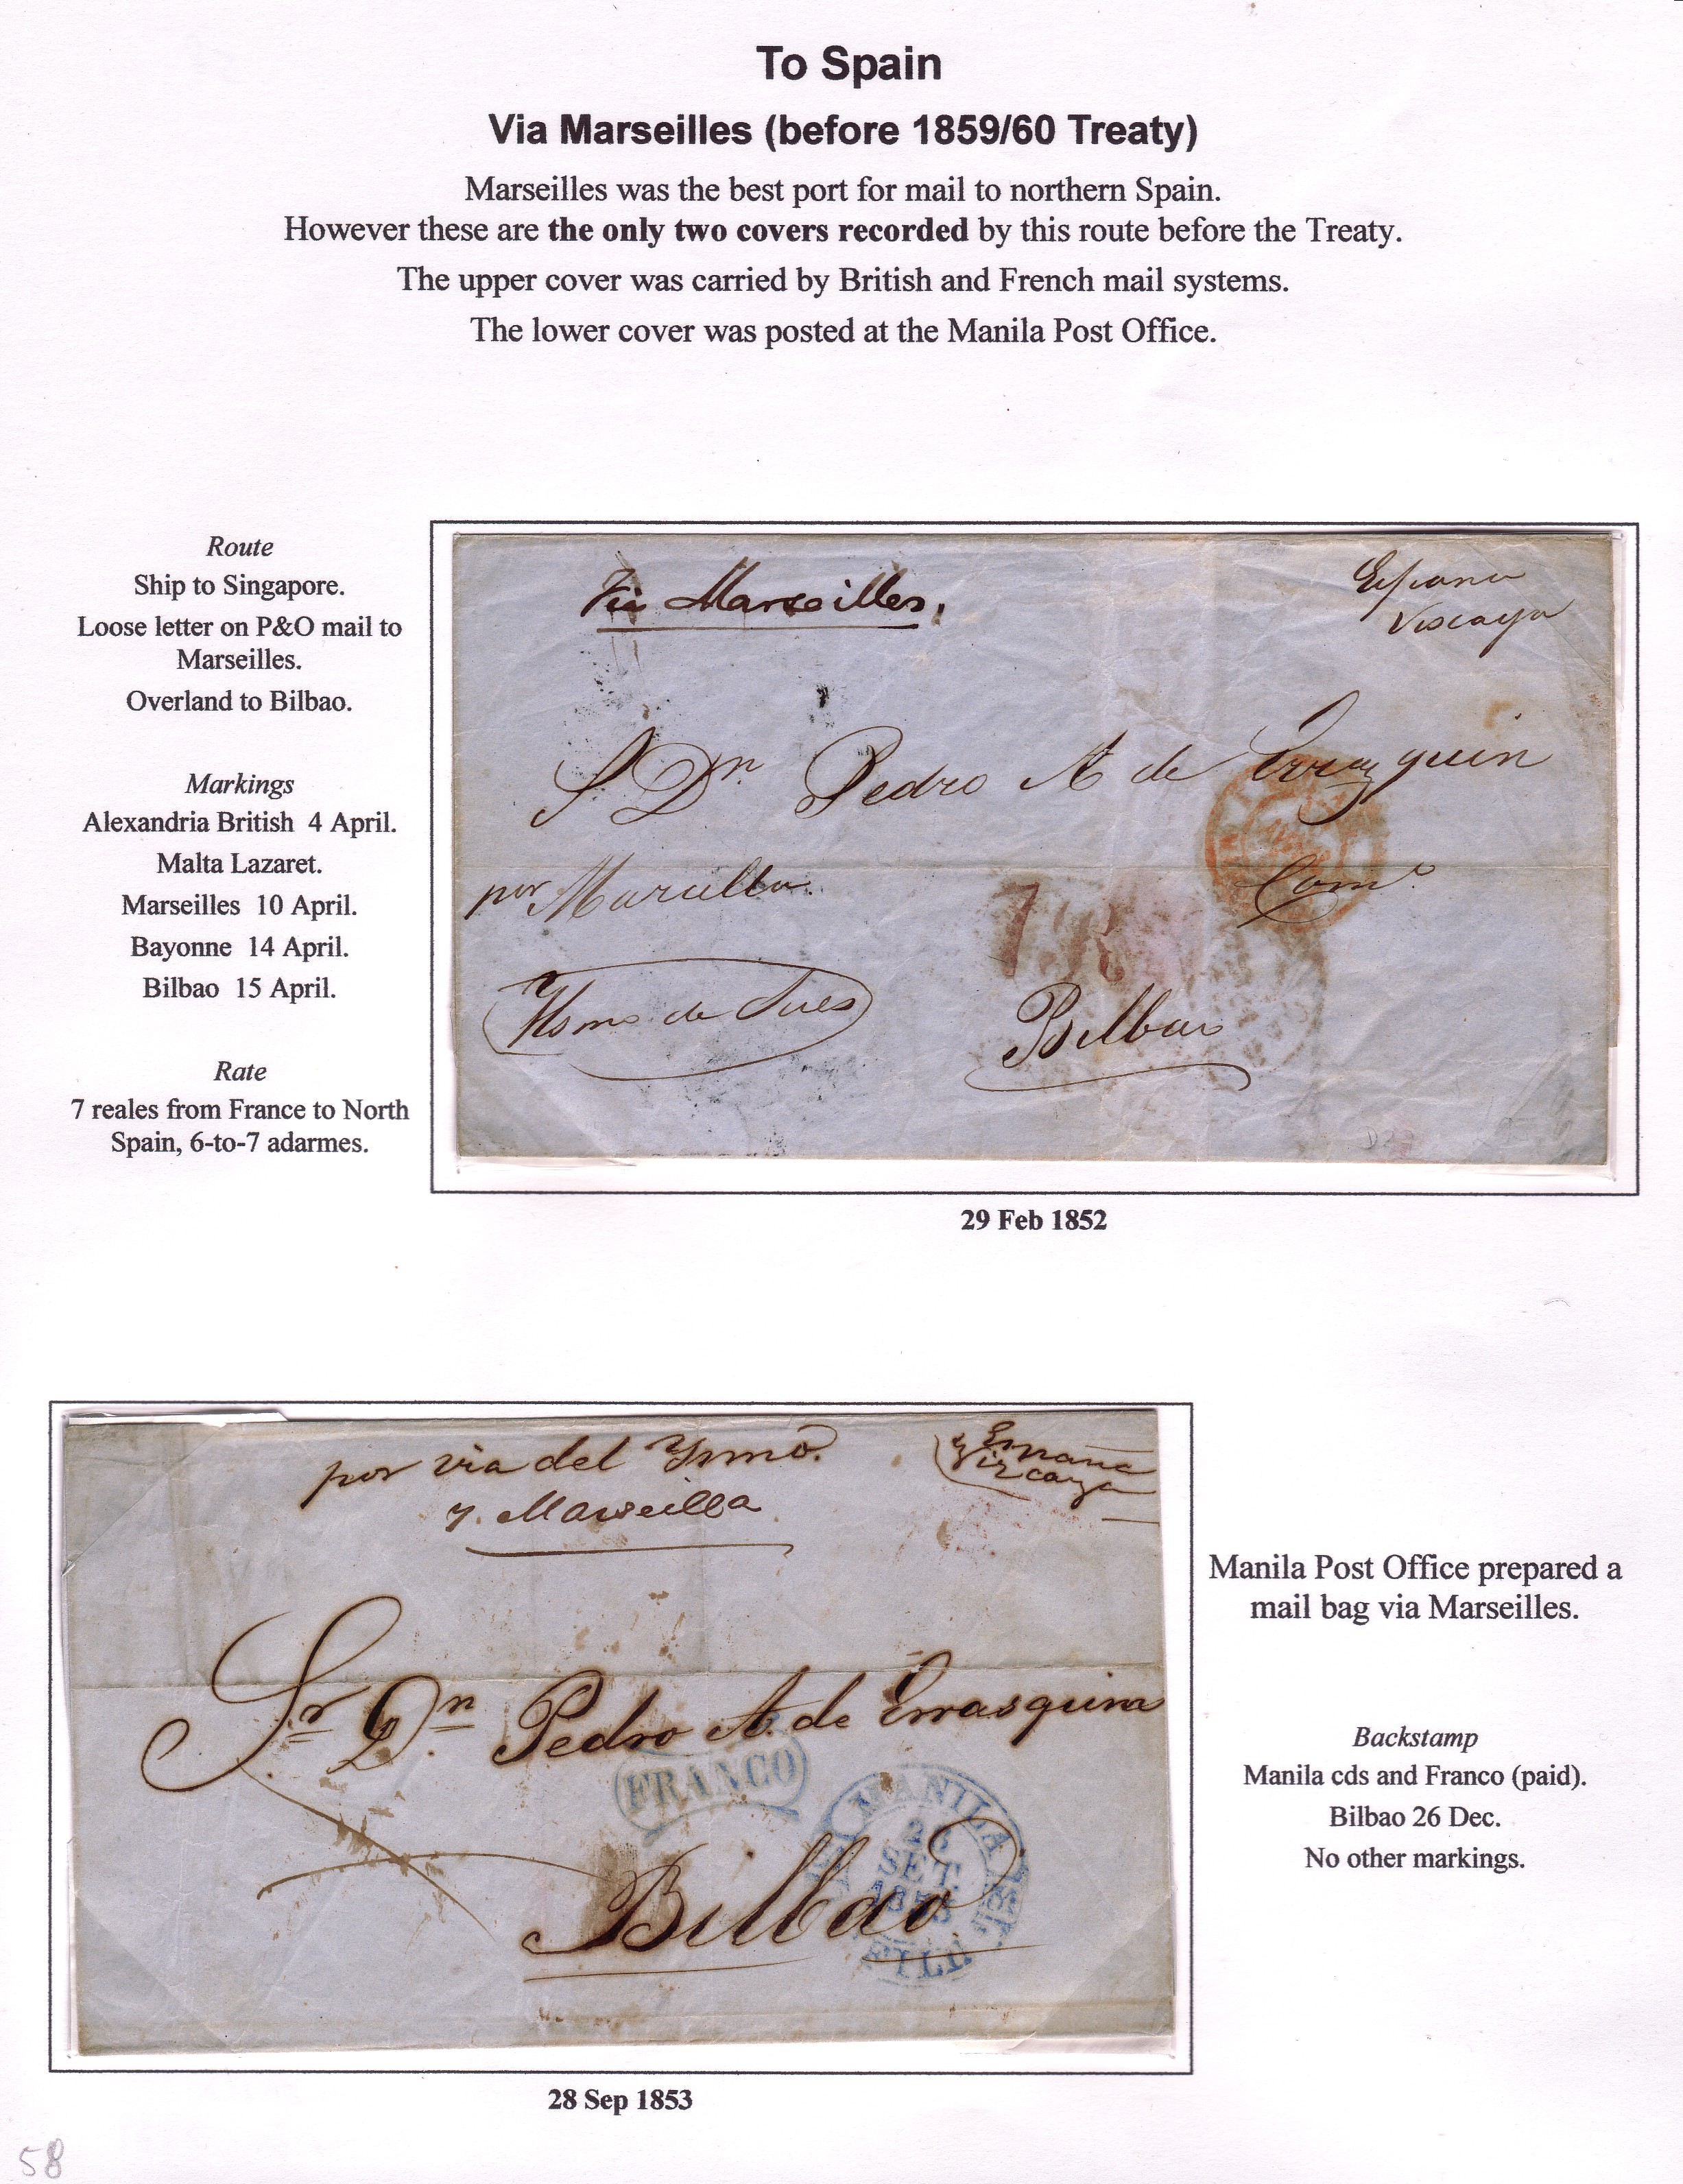 To Spain
Via Marseilles (before 1859/60 Treaty)
Marseilles was the best port for mail to northern Spain.
However these are the only two covers recorded by this route before the Treaty.
The upper cover was carried by British and French mail systems.
The lower cover was posted at the Manila Post Office.
Route
Ship to Singapore.
Loose letter on P&O mail to
Marseilles.
Overland to Bilbao.
Markings
Alexandria British 4 April.
Malta Lazaret.
Marseilles 10 April.
Bayonne 14 April.
Bilbao 15 April.
Rate
7 reales from France to North
Spain, 6-to-7 adarmes.
Via Marseilles,
España
Viscaya
S Dn Pedro A de Errazquin
por Marsella.
Como
7 R
Ysmo de Sues
Bilbao
29 Feb 1852
por via del Ysmo.
y Marseilla
España
Viscaya
Sr Dn Pedro A. de Errasquin
FRANCO
MANILA
SET.
1853
FILP
Bilbao
28 Sep 1853
Manila Post Office prepared a
mail bag via Marseilles.
Backstamp
Manila cds and Franco (paid).
Bilbao 26 Dec.
No other markings.
58